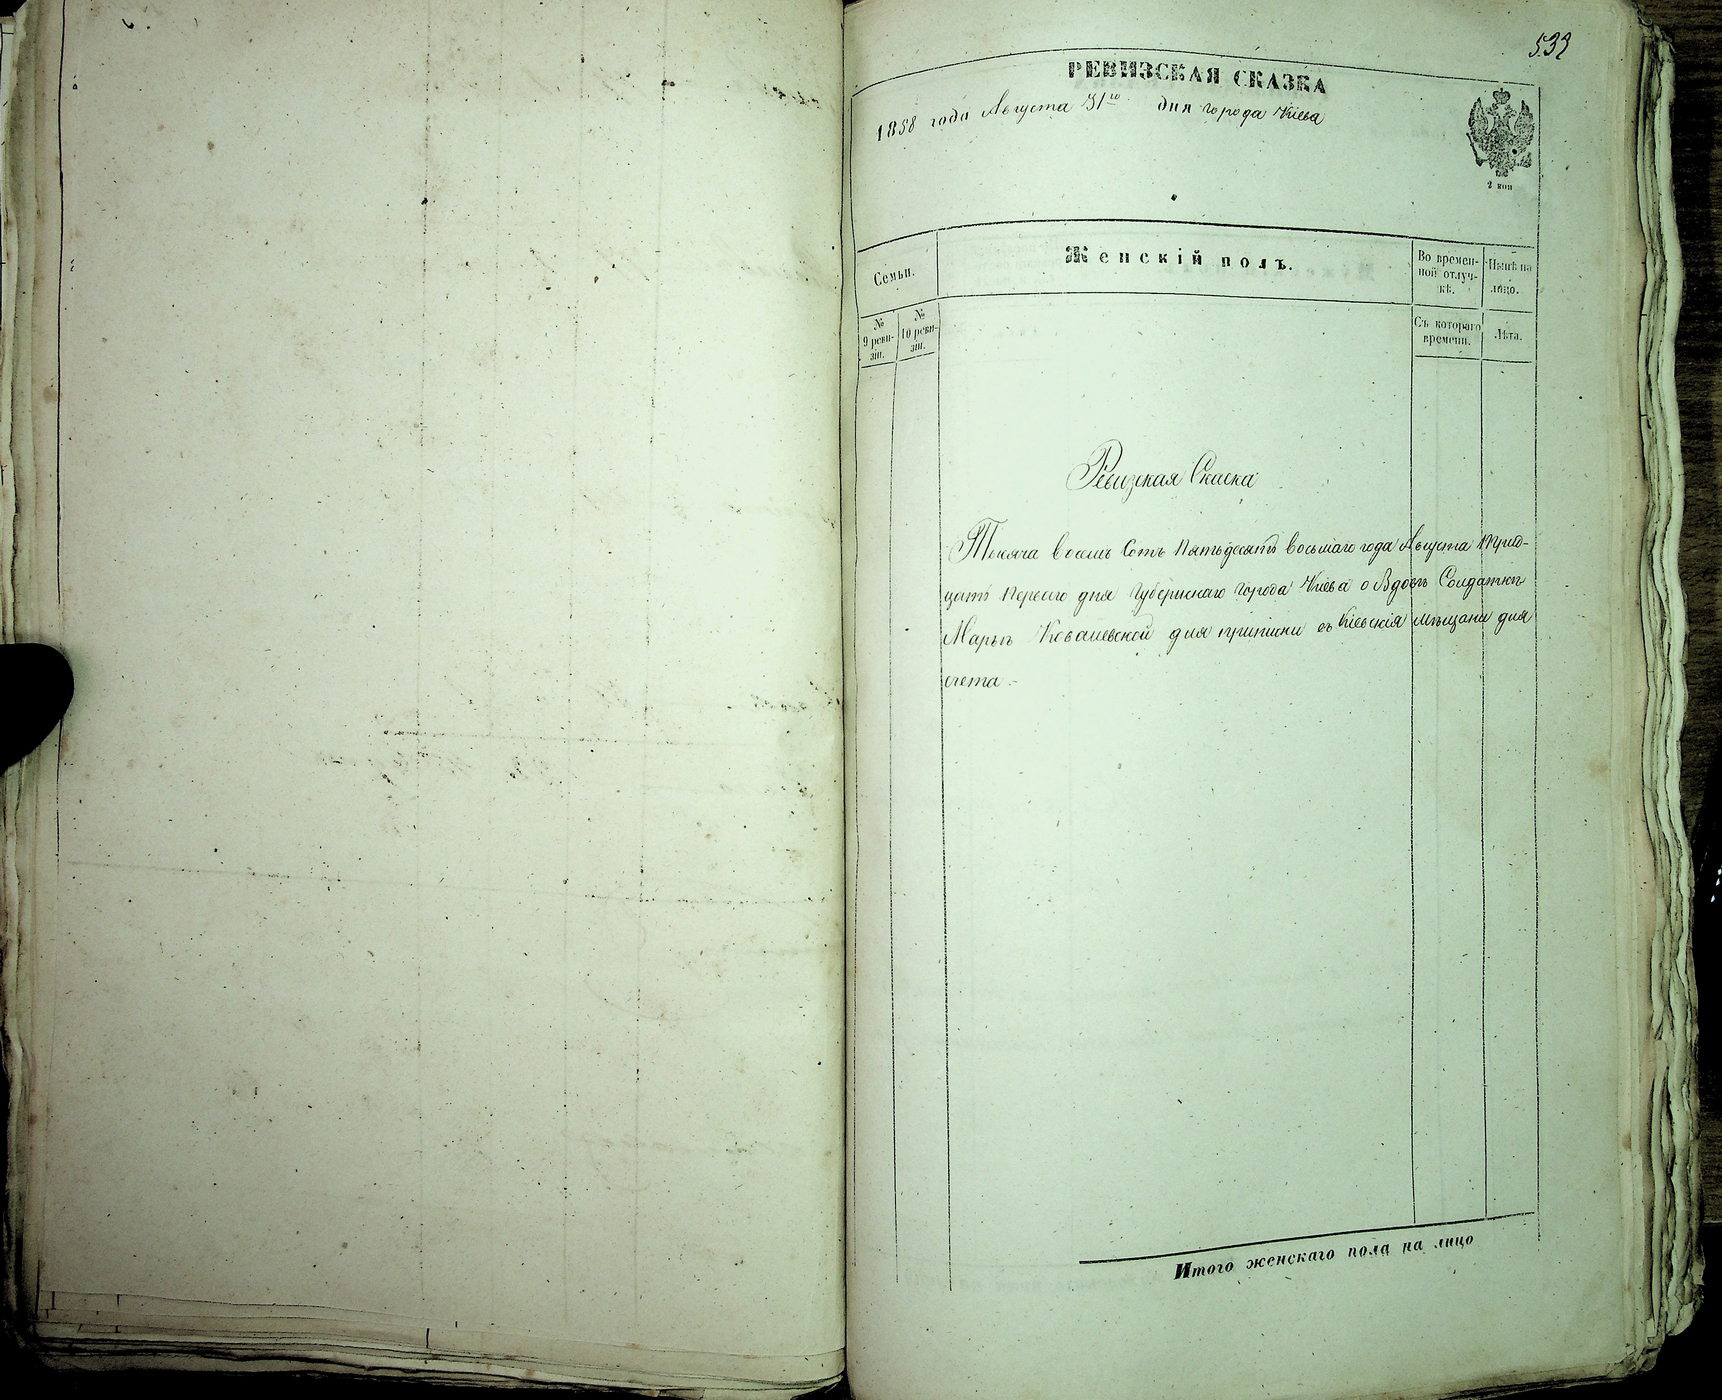 539
РЕВИЗСКАЯ СКАЗКА
1858 года Августа 31го дня города Кіева
2 коп
Семьи.
Женскій полъ.
Во времен-
ной отлуч-
кѣ.
Нынѣ на
лицо.
№
9 реви-
зіи.
№
10 реви-
зіи.
Съ котораго
времени.
Лѣта.
Ревизская Скаска
Тысяча восемь Сотъ Пятьдесятъ восьмаго года Августа Трид-
цать Перваго дня Губернскаго города Кіева о Вдовѣ Солдаткѣ
Марьѣ Ковалевской для приписки въ Кіевскія мѣщани для
счета.-
Итого женскаго пола на лицо